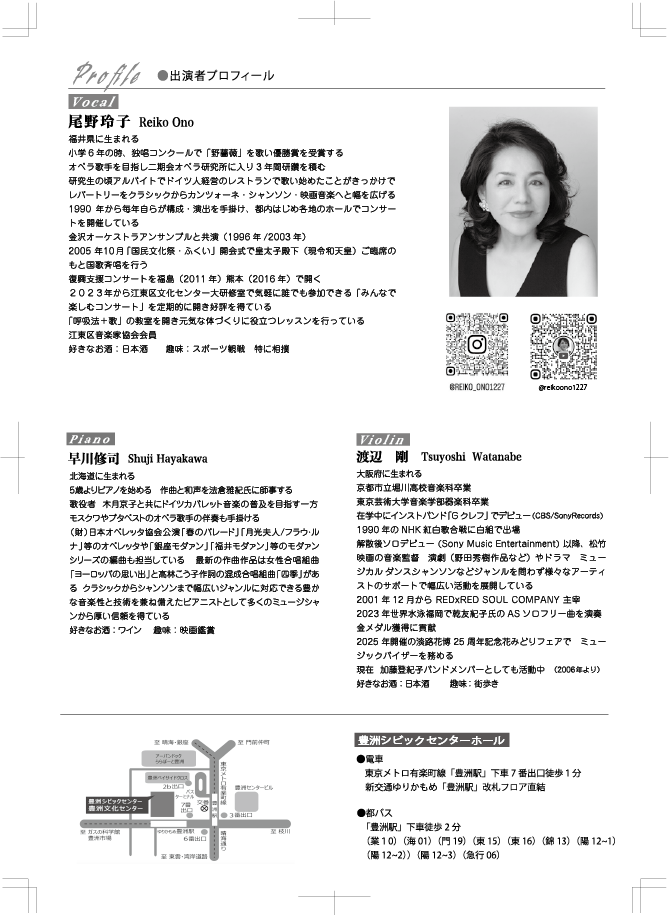 Profile ●出演者プロフィール
Vocal
尾野玲子 Reiko Ono
福井県に生まれる
小学6年の時、独唱コンクールで「野薔薇」を歌い優勝賞を受賞する
オペラ歌手を目指し二期会オペラ研究所に入り3年間研鑽を積む
研究生の頃アルバイトでドイツ人経営のレストランで歌い始めたことがきっかけで
レパートリーをクラシックからカンツォーネ・シャンソン・映画音楽へと幅を広げる
1990 年から毎年自らが構成・演出を手掛け、都内はじめ各地のホールでコンサー
トを開催している
金沢オーケストラアンサンブルと共演(1996年/2003年)
2005年10月「国民文化祭・ふくい」開会式で皇太子殿下(現令和天皇)ご臨席の
もと国歌斉唱を行う
復興支援コンサートを福島(2011年)熊本(2016年)で開く
2023年から江東区文化センター大研修室で気軽に誰でも参加できる「みんなで
楽しむコンサート」を定期的に開き好評を得ている
「呼吸法+歌」の教室を開き元気な体づくりに役立つレッスンを行っている
江東区音楽家協会会員
好きなお酒:日本酒 趣味:スポーツ観戦 特に相撲
@REIKO_ONO1227
@reikoono1227
Piano
早川修司 Shuji Hayakawa
北海道に生まれる
5歳よりピアノを始める 作曲と和声を法倉雅紀氏に師事する
歌役者 木月京子と共にドイツカバレット音楽の普及を目指す一方
モスクワやブタペストのオペラ歌手の伴奏も手掛ける
(財)日本オペレッタ協会公演「春のパレード」「月光夫人/フラウ・ル
ナ」等のオペレッタや「銀座モダァン」「福井モダァン」等のモダァン
シリーズの編曲も担当している 最新の作曲作品は女性合唱組曲
「ヨーロッパの思い出」と高林こう子作詞の混成合唱組曲「四季」があ
る クラシックからシャンソンまで幅広いジャンルに対応できる豊か
な音楽性と技術を兼ね備えたピアニストとして多くのミュージシャ
ンから厚い信頼を得ている
好きなお酒:ワイン 趣味:映画鑑賞
Violin
渡辺 剛 Tsuyoshi Watanabe
大阪府に生まれる
京都市立堀川高校音楽科卒業
東京芸術大学音楽学部器楽科卒業
在学中にインストバンド「G クレフ」でデビュー(CBS/SonyRecords)
1990年のNHK紅白歌合戦に白組で出場
解散後ソロデビュー(Sony Music Entertainment)以降、松竹
映画の音楽監督 演劇(野田秀樹作品など)やドラマ ミュー
ジカルダンスシャンソンなどジャンルを問わず様々なアーティ
ストのサポートで幅広い活動を展開している
2001年12月から REDxRED SOUL COMPANY 主宰
2023年世界水泳福岡で乾友紀子氏のASソロフリー曲を演奏
金メダル獲得に貢献
2025年開催の淡路花博25周年記念花みどりフェアで ミュー
ジックバイザーを務める
現在 加藤登紀子バンドメンバーとしても活動中 (2006年より)
好きなお酒:日本酒 趣味:街歩き
至 晴海・銀座
至 門前仲町
アーバンドック
ららぽーと豊洲
東京メトロ有楽町線
豊洲ベイサイドクロス
2b出口
バス
ターミナル
豊洲センタービル
豊洲シビックセンター
豊洲文化センター
7番
出口
交番
豊洲駅
3番出口
至 ガスの科学館
豊洲市場
ゆりかもめ豊洲駅
6番出口
晴海通り
至 枝川
至 東雲・湾岸道路
豊洲シビックセンターホール
●電車
東京メトロ有楽町線「豊洲駅」下車7番出口徒歩1分
新交通ゆりかもめ「豊洲駅」改札フロア直結
●都バス
「豊洲駅」下車徒歩2分
(業10)(海01)(門19)(東15)(東16)(錦13)(陽12~1)
(陽12~2))(陽12~3)(急行06)